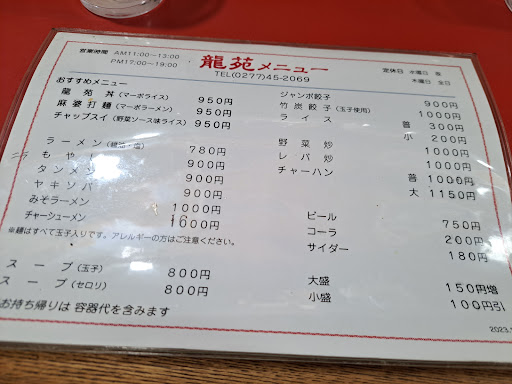 営業時間 AM11:00~13:00
PM17:00~19:00
龍苑メニュー
TEL(0277)45-2069
定休日 水曜日 夜
木曜日 全日
おすすめメニュー
龍苑丼(マーボライス) 950円
麻婆打麺(マーボラーメン) 950円
チャップスイ(野菜ソース味ライス) 950円
ラーメン 780円
もやし 900円
タンメン 900円
ヤキソバ 900円
みそラーメン 1000円
チャーシューメン 1000円
※麺はすべて玉子入りです。アレルギーの方はご注意ください。
スープ(玉子) 800円
スープ(セロリ) 800円
お持ち帰りは 容器代を含みます
ジャンボ餃子 900円
竹炭餃子(玉子使用) 1000円
ライス 普 300円
小 200円
野菜炒 1000円
レバ炒 1000円
チャーハン 普 1000円
大 1150円
ビール 750円
コーラ 200円
サイダー 180円
大盛 150円増
小盛 100円引
2023.